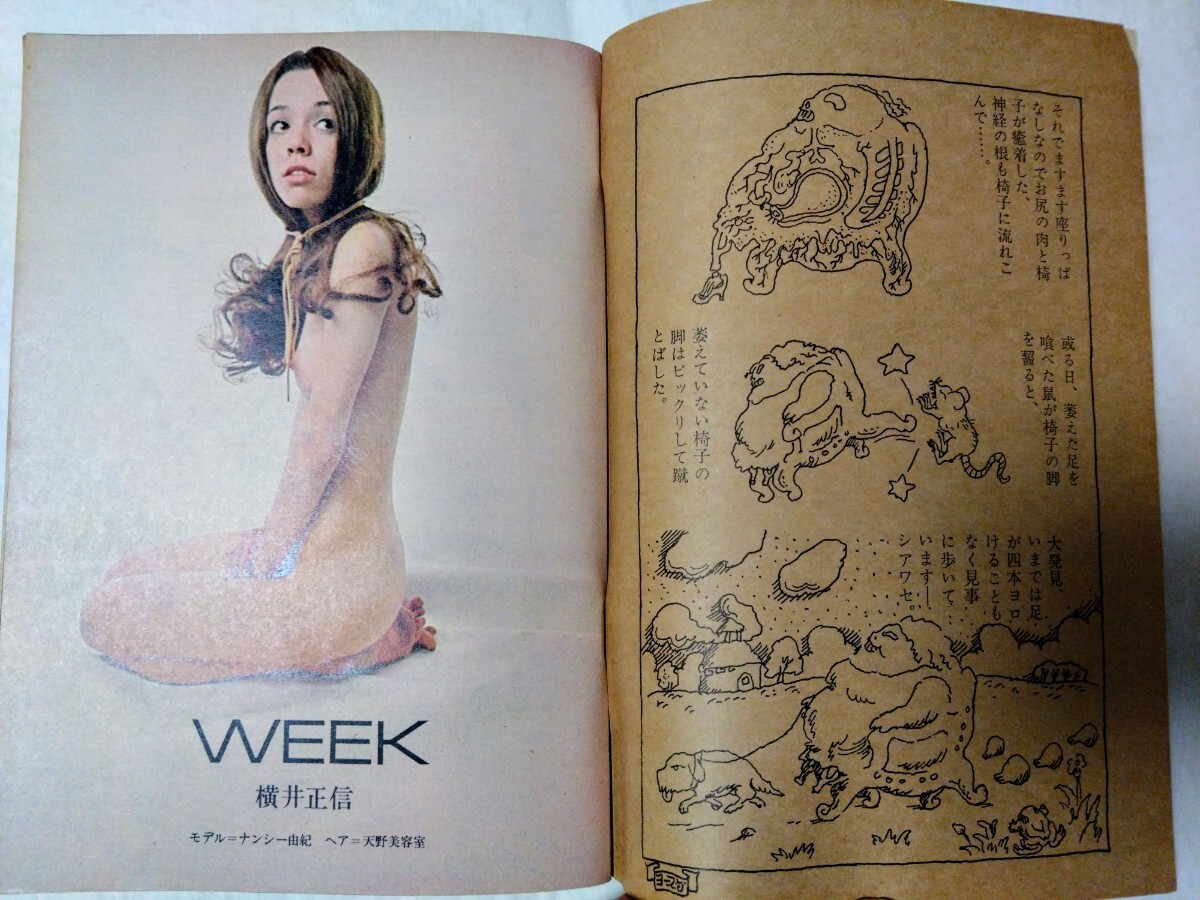 WEEK
横井正信
モデル=ナンシー由紀 ヘア=天野美容室
それでますます座りっぱ
なしなのでお尻の肉と椅
子が癒着した、
神経の根も椅子に流れこ
んで……。
或る日、萎えた足を
喰べた鼠が椅子の脚
を齧ると、
萎えていない椅子の
脚はビックリして蹴
とばした。
大発見、
いまでは足
が四本ヨロ
けることも
なく見事
に歩いて
います――、
シアワセ。
ヨースケ